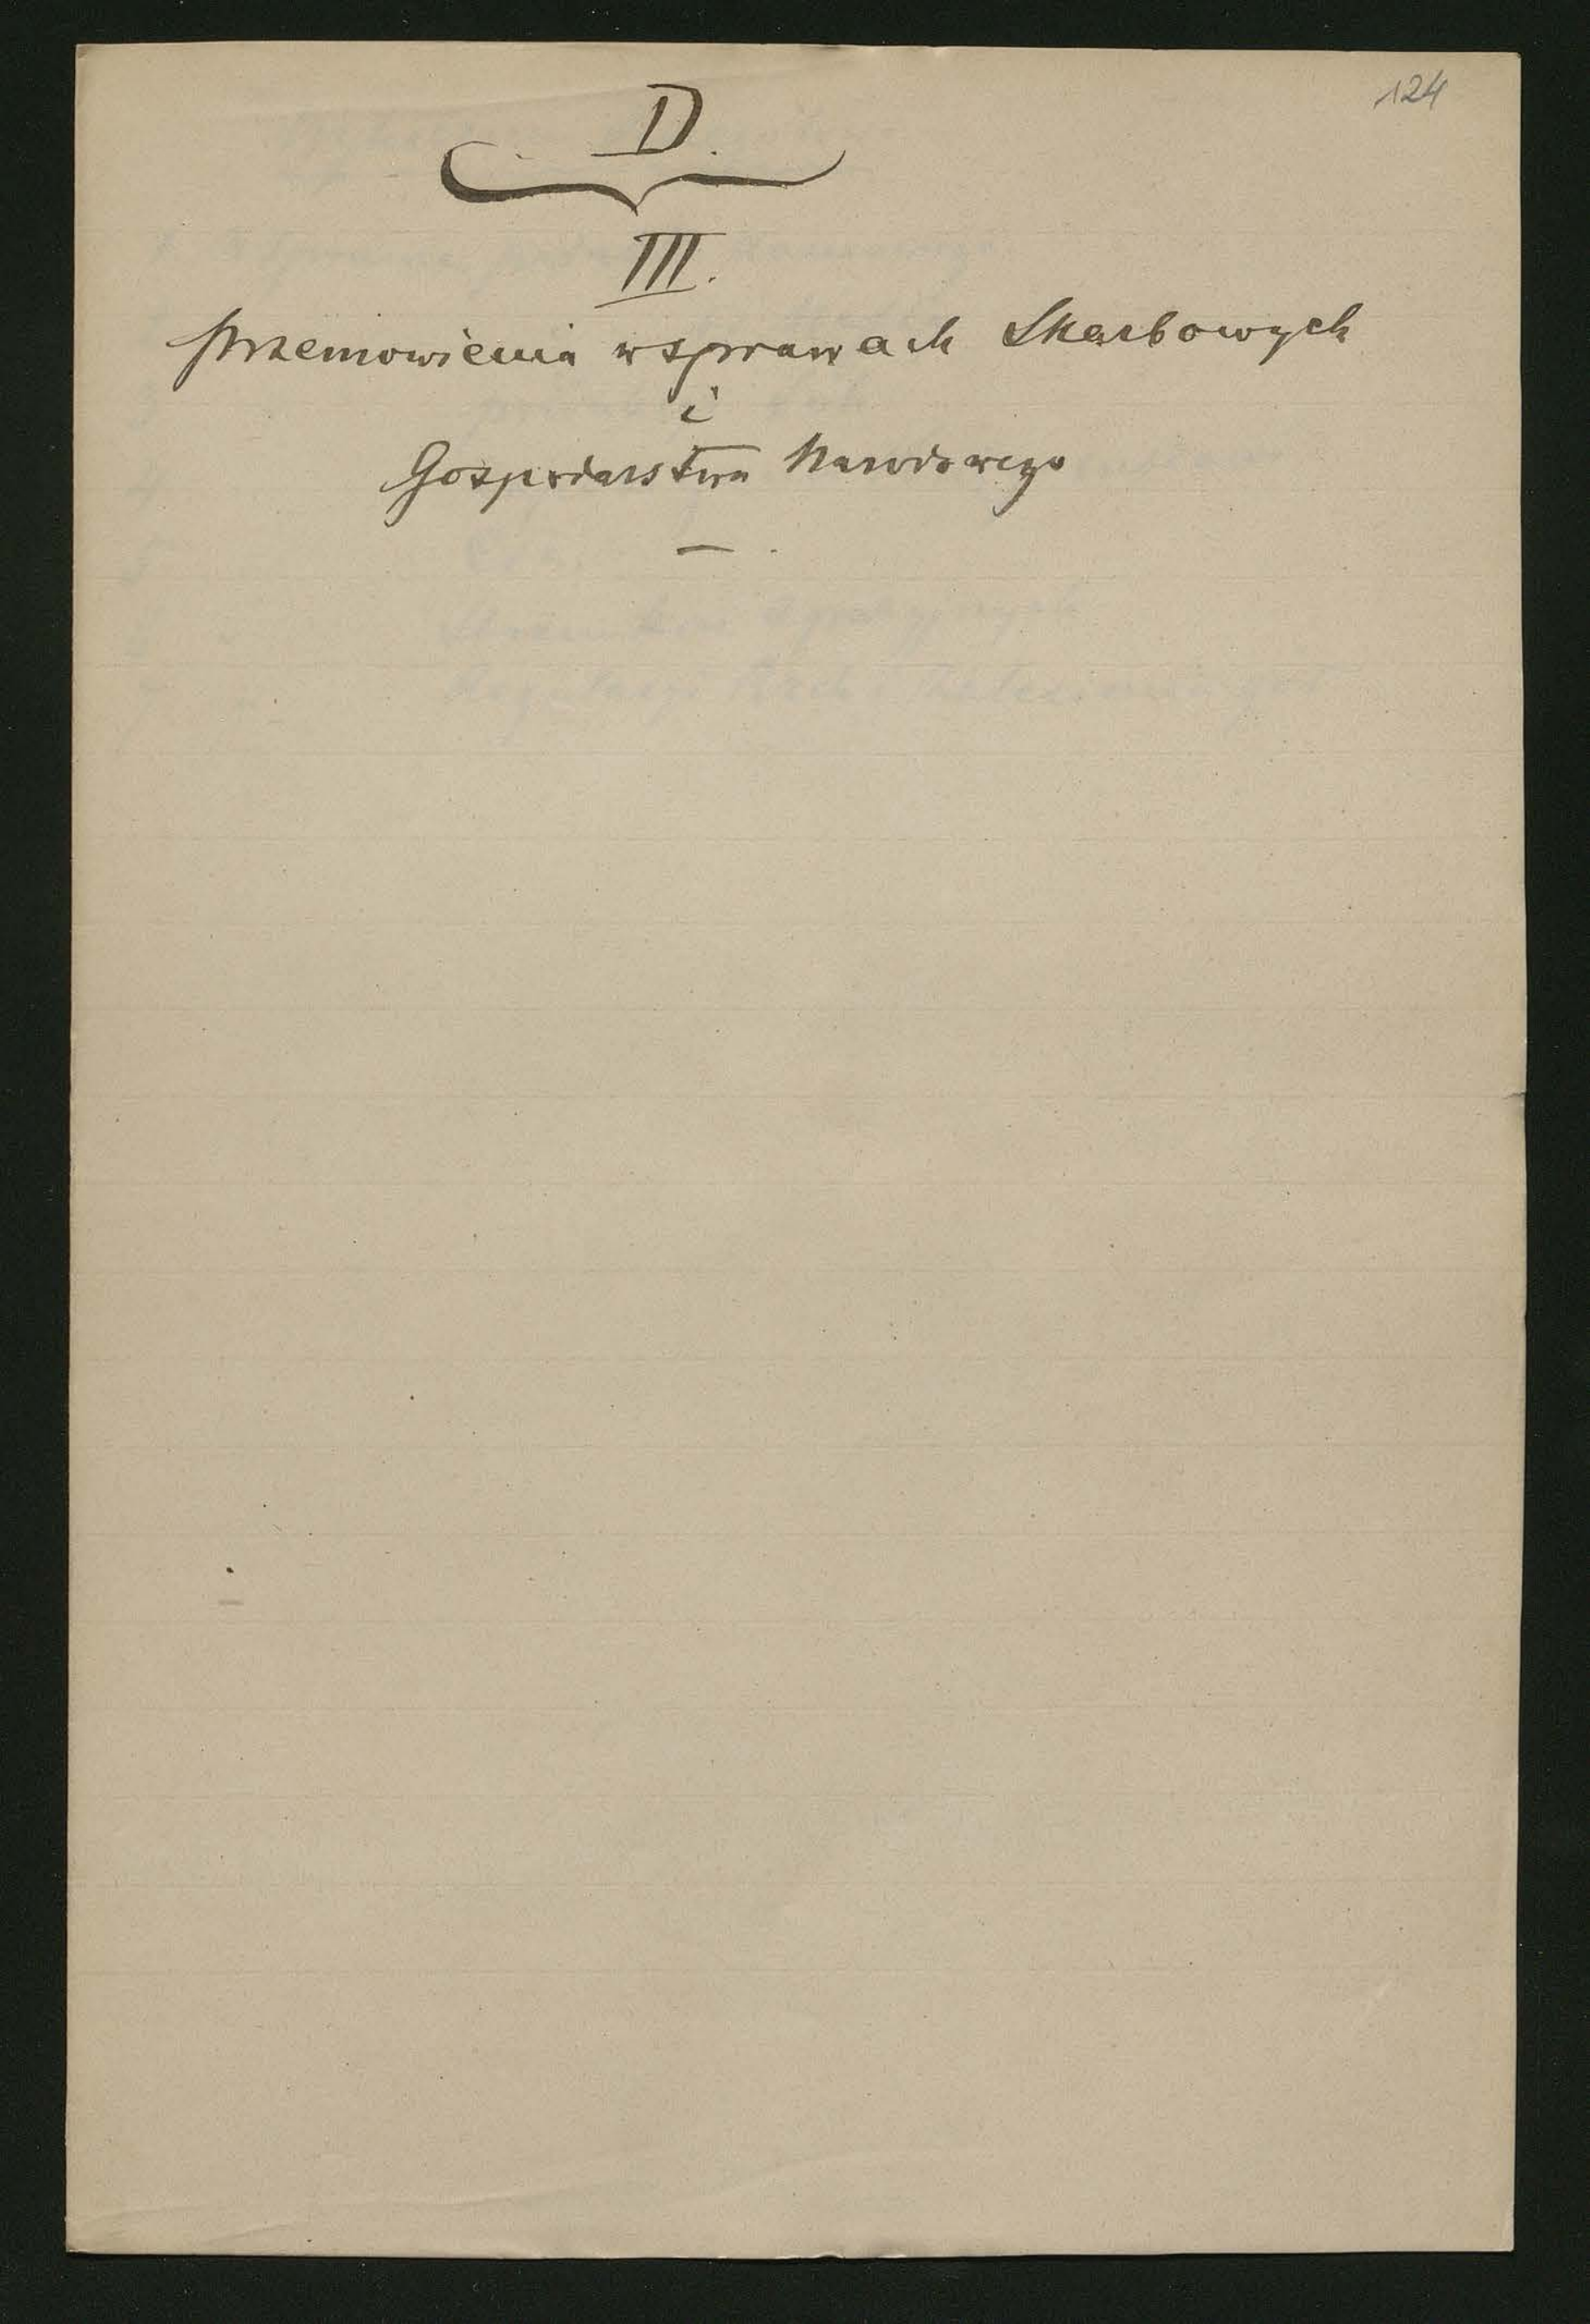 124
D.
III.
Przemowienia w sprawach Skarbowych
i
Gospodarstwa Narodowego
—